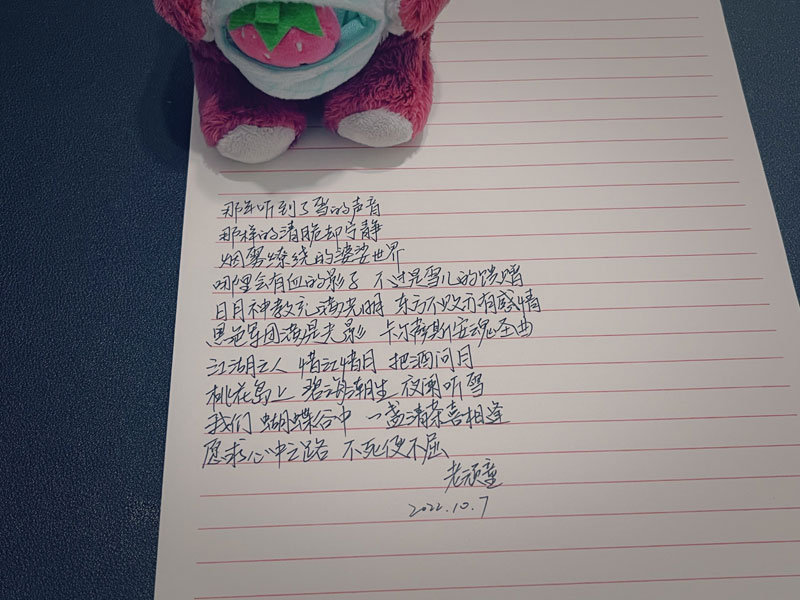 那年听到了雪的声音
那样的清脆却宁静
烟雾缭绕的婆娑世界
哪里会有血的影子 不过是雪儿的馈赠
日月神教充满光明 东方不败亦有感情
黑色军团满是光影 卡尔萨斯安魂圣曲
江湖之人 惜江惜月 把酒问月
桃花岛上 碧海潮生 夜阑听雪
我们 蝴蝶谷中 一盏清茶喜相逢
愿求心中之路 不死便不屈
老顽童
2022.10.7